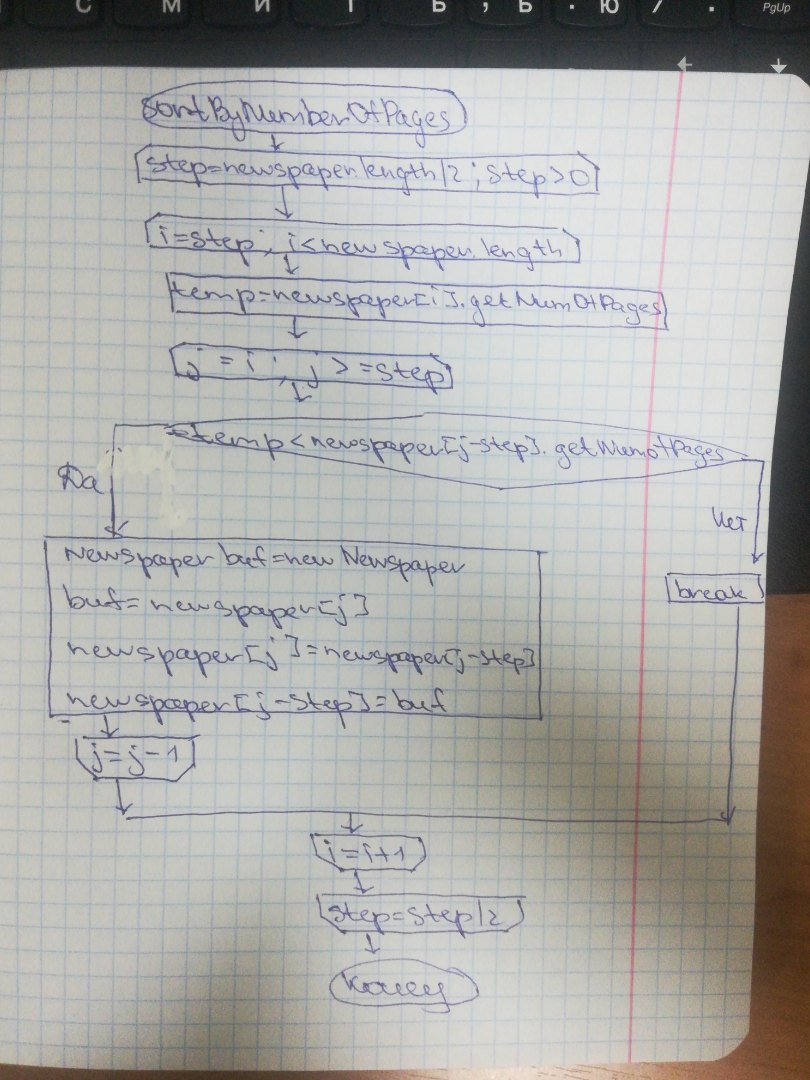 С М И Т Ь , Б . Ю / . PgUp
sortByNumberOfPages
step=newspaper.length/2 ; step>0
i=step; i<newspaper.length
temp=newspaper[i].getNumOfPages
j = i ; j >=step
temp<newspaper[j-step].getNumOfPages
Да
Нет
Newspaper buf=new Newspaper
break
buf=newspaper[j]
newspaper[j]=newspaper[j-step]
newspaper[j-step]=buf
j=j-1
i=i+1
step=step/2
Конец